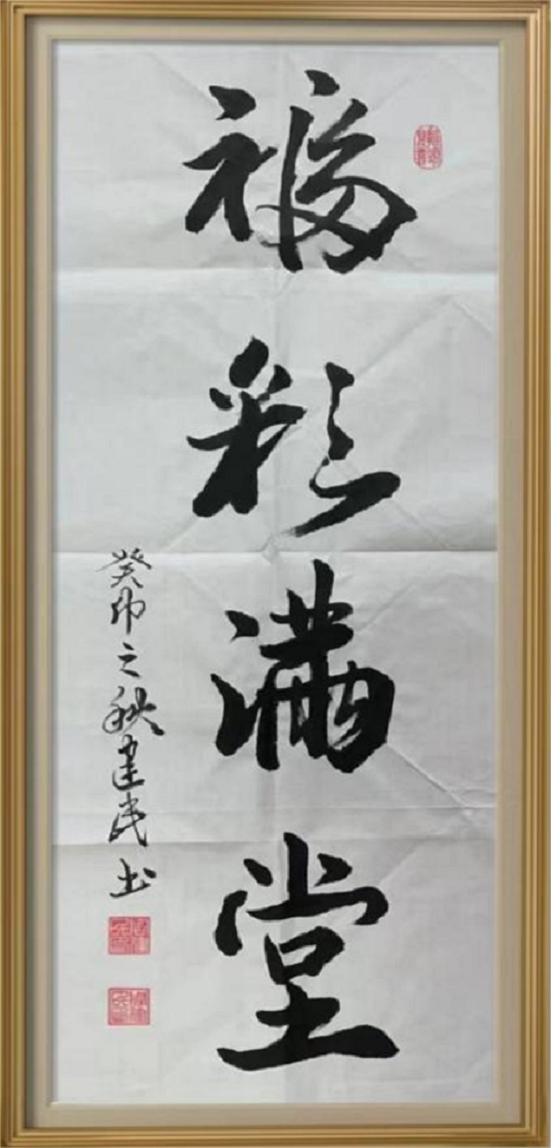 福彩满堂
癸卯之秋建民书